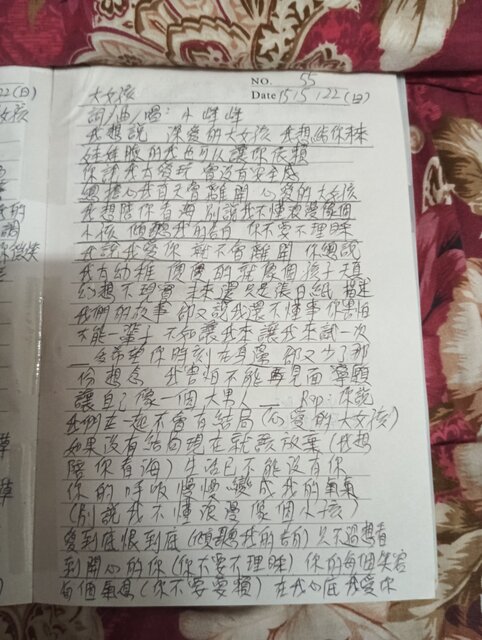 NO. 55
大女孩
Date 15.5.22(日)
詞/曲/唱: 小峰峰
我想說 深愛的大女孩 我想給你未來
娃娃臉的我也可以讓你依賴
你說我太愛玩 會沒有安全感
總擔心我有天會離開 心愛的大女孩
我想陪你看海 別說我不懂浪漫像個
小孩 傾聽我的告白 你不要不理睬
我說我愛你 就不會離開 你總說
我太幼稚 傻傻的就像個孩子 天真
幻想不現實 未來還只是張白紙 描述
我們的故事 卻又說我還不懂事 你害怕
不能一輩子 不如讓我來讓我來試一次
希望你時刻在身邊 卻又少了那
份想念 我害怕不能再見面 寧願
讓自己像一個大男人 Rap: 你說
我們在一起不會有結局 (心愛的大女孩)
如果沒有結局現在就該放棄 (我想
陪你看海) 生活已不能沒有你
你的呼吸慢慢變成我的氧氣
(別說我不懂浪漫像個小孩)
愛到底恨到底 (傾聽我的告白) 只不過想看
到開心的你 (你不要不理睬) 你的每個笑容
每個氣息 (你不要耍賴) 在我心底 我愛你
22(日)
女孩
的
調
你微笑
草
草